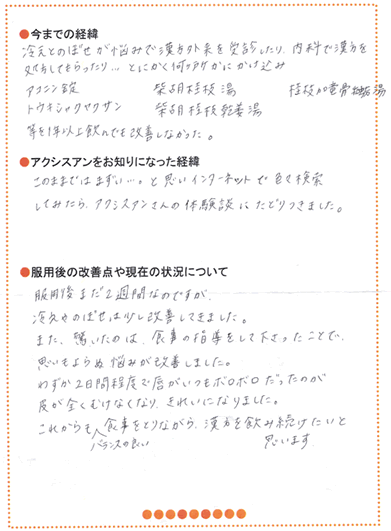 ●今までの経緯
冷えとのぼせが悩みで漢方外来を受診したり、内科で漢方を
処方してもらったり…とにかく何ヶ所かにかけ込み
アコニン錠　柴胡桂枝湯　桂枝加竜骨牡蛎湯
トウキシャクヤクサン　柴胡桂枝乾姜湯
等を1年以上飲んでも改善しなかった。
●アクシスアンをお知りになった経緯
このままではまずい…。と思いインターネットで色々検索
してみたら、アクシスアンさんの体験談にたどりつきました。
●服用後の改善点や現在の状況について
服用後まだ2週間なのですが、
冷えやのぼせは少し改善してきました。
また、驚いたのは、食事の指導をして下さったことで、
思いもよらぬ悩みが改善しました。
わずか2日間程度で唇がいつもボロボロだったのが
皮が全くむけなくなり、きれいになりました。
これからもバランスの良い食事をとりながら、漢方を飲み続けたいと
思います